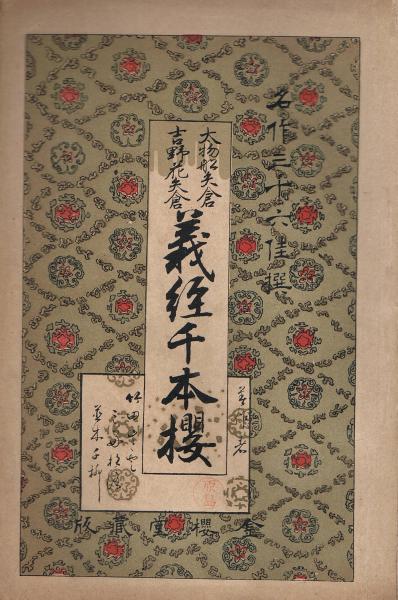 名作三十六佳撰
大物船矢倉
吉野花矢倉
義経千本櫻
著作者
竹田出雲
三好松洛
並木千柳
金櫻堂蔵版